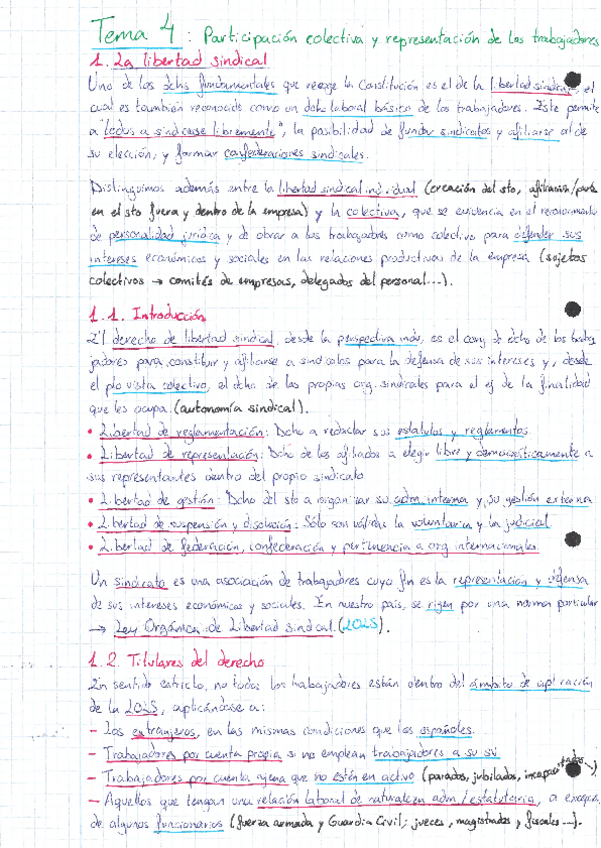 Tema 4: Participación colectiva y representación de los trabajadores
1. La libertad sindical
Uno de los dchs fundamentales que recoge la Constitución es el de la libertad sindical, el
cual es también reconocido como un dcho laboral básico de los trabajadores. Éste permite
a "todos a sindicarse libremente", la posibilidad de fundar sindicatos y afiliarse al de
su elección, y formar confederaciones sindicales.
Distinguimos además entre la libertad sindical individual (creación del sto, afiliación/
en el sto fuera y dentro de la empresa) y la colectiva, que se evidencia en el
de personalidad jurídica y de obrar a los trabajadores como colectivo para defender sus
intereses económicos y sociales en las relaciones productivas de la empresa (sujetos
colectivos → comités de empresas, delegados del personal...).
1.1. Introducción
El derecho de libertad sindical, desde la perspectiva indv, es el conj de dcho de los traba
jadores para constituir y afiliarse a sindicatos para la defensa de sus intereses y, desde
el pto vista colectivo, el dcho de las propias org. sindicales para el ej de la finalidad
que les ocupa (autonomía sindical).
• Libertad de reglamentación: Dcho a redactar sus estatutos y reglamentos
• Libertad de representación: Dcho de los afiliados a elegir libre y democráticamente a
sus representantes dentro del propio sindicato
• Libertad de gestión: Dcho del sto a organizar su adm interna y su gestión externa
• Libertad de suspensión y disolución: Sólo son válidas la voluntaria y la judicial
• Libertad de federación, confederación y pertenencia a org internacionales
Un sindicato es una asociación de trabajadores cuyo fin es la representación y defensa
de sus intereses económicos y sociales. En nuestro país, se rigen por una norma particular
→ Ley Orgánica de Libertad Sindical (LOLS).
1.2. Titulares del derecho
En sentido estricto, no todos los trabajadores están dentro del ámbito de aplicación
de la LOLS, aplicándose a:
– Los extranjeros, en las mismas condiciones que los españoles.
– Trabajadores por cuenta propia si no emplean trabajadores a su sv
– Trabajadores por cuenta ajena que no estén en activo (parados, jubilados, incapacitados...)
– Aquellos que tengan una relación laboral de naturaleza adm/estatutaria, a excepc
de algunos funcionarios (fuerza armada y Guardia Civil; jueces, magistrados, fiscales...).